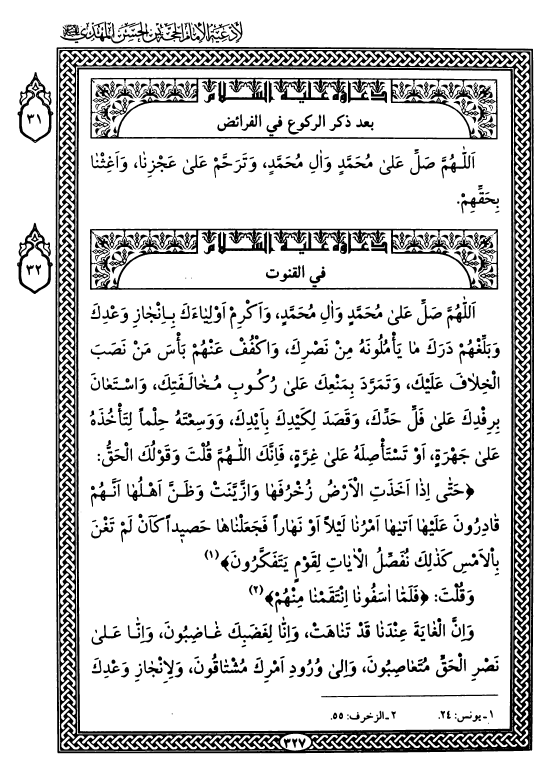 لأدعية الإمام الحجة بن الحسن المهدي
٣١
دعاؤه عليه السلام
بعد ذكر الركوع في الفرائض
اَللّٰهُمَّ صَلِّ عَلىٰ مُحَمَّدٍ وَاٰلِ مُحَمَّدٍ، وَتَرَحَّمْ عَلىٰ عَجْزِنٰا، وَاَغِثْنٰا
بِحَقِّهِمْ.
٣٢
دعاؤه عليه السلام
في القنوت
اَللّٰهُمَّ صَلِّ عَلىٰ مُحَمَّدٍ وَاٰلِ مُحَمَّدٍ، وَاَكْرِمْ اَوْلِيٰاءَكَ بِـاِنْجٰازِ وَعْدِكَ
وَبَلِّغْهُمْ دَرَكَ مٰا يَأْمُلُونَهُ مِنْ نَصْرِكَ، وَاكْفُفْ عَنْهُمْ بَأْسَ مَنْ نَصَبَ
الْخِلاٰفَ عَلَيْكَ، وَتَمَرَّدَ بِمَنْعِكَ عَلىٰ رُكُوبِ مُخٰالَفَتِكَ، وَاسْتَعٰانَ
بِرِفْدِكَ عَلىٰ فَلِّ حَدِّكَ، وَقَصَدَ لِكَيْدِكَ بِاَيْدِكَ، وَوَسِعْتَهُ حِلْماً لِتَأْخُذَهُ
عَلىٰ جَهْرَةٍ، اَوْ تَسْتَأْصِلَهُ عَلىٰ غِرَّةٍ، فَاِنَّكَ اللّٰهُمَّ قُلْتَ وَقَوْلُكَ الْحَقُّ:
﴿حَتّٰى اِذٰا اَخَذَتِ الْاَرْضُ زُخْرُفَهٰا وَازَّيَّنَتْ وَظَنَّ اَهْلُهٰا اَنَّهُمْ
قٰادِرُونَ عَلَيْهٰا اَتٰيهٰا اَمْرُنٰا لَيْلاً اَوْ نَهٰاراً فَجَعَلْنٰاهٰا حَصيداً كَاَنْ لَمْ تَغْنَ
بِالْاَمْسِ كَذٰلِكَ نُفَصِّلُ الْاٰيٰاتِ لِقَوْمٍ يَتَفَكَّرُونَ﴾(١)
وَقُلْتَ: ﴿فَلَمّٰا اٰسَفُونٰا اِنْتَقَمْنٰا مِنْهُمْ﴾(٢)
وَاِنَّ الْغٰايَةَ عِنْدَنٰا قَدْ تَنٰاهَتْ، وَاِنّٰا لِغَضَبِكَ غٰاضِبُونَ، وَاِنّٰا عَلىٰ
نَصْرِ الْحَقِّ مُتَعٰاصِبُونَ، وَاِلىٰ وُرُودِ اَمْرِكَ مُشْتٰاقُونَ، وَلِاِنْجٰازِ وَعْدِكَ
١ـ يونس: ٢٤. ٢ـ الزخرف: ٥٥.
٣٢٧